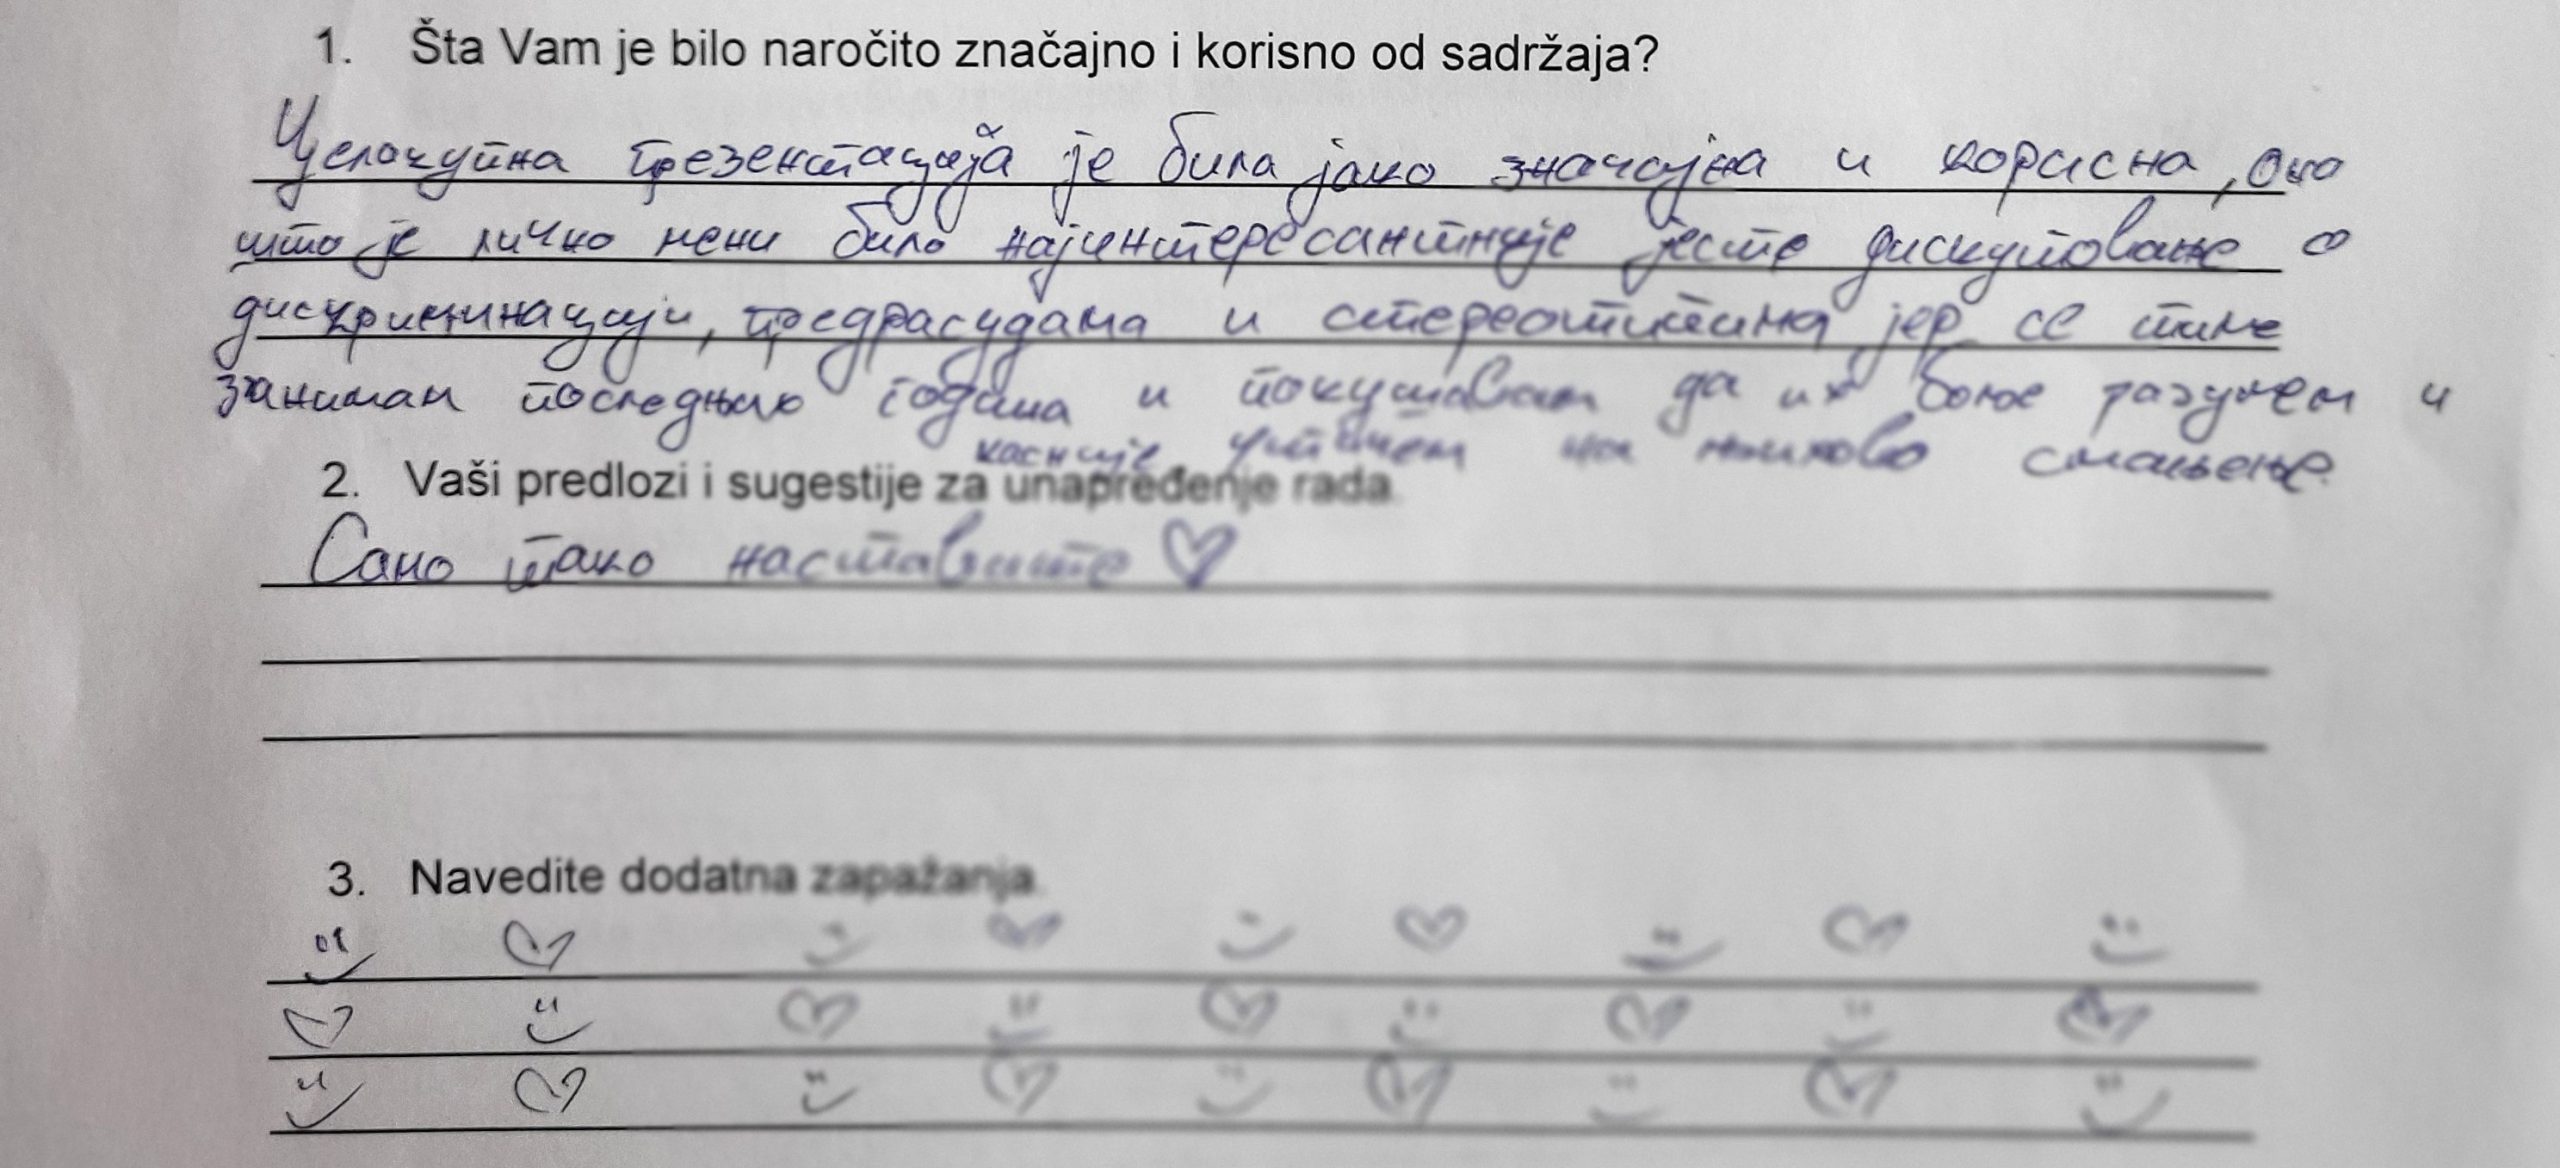 1. Šta Vam je bilo naročito značajno i korisno od sadržaja?
Целокупна презентација је била јако значајна и корисна, оно
што је лично мени било најинтересантније јесте дискутовање о
дискриминацији, предрасудама и стереотипима јер се тиме
занимам последњих година и покушавам да их боље разумем и
касније утичем на њихово смањење.
2. Vaši predlozi i sugestije za unapređenje rada.
Само тако наставите
3. Navedite dodatna zapažanja.